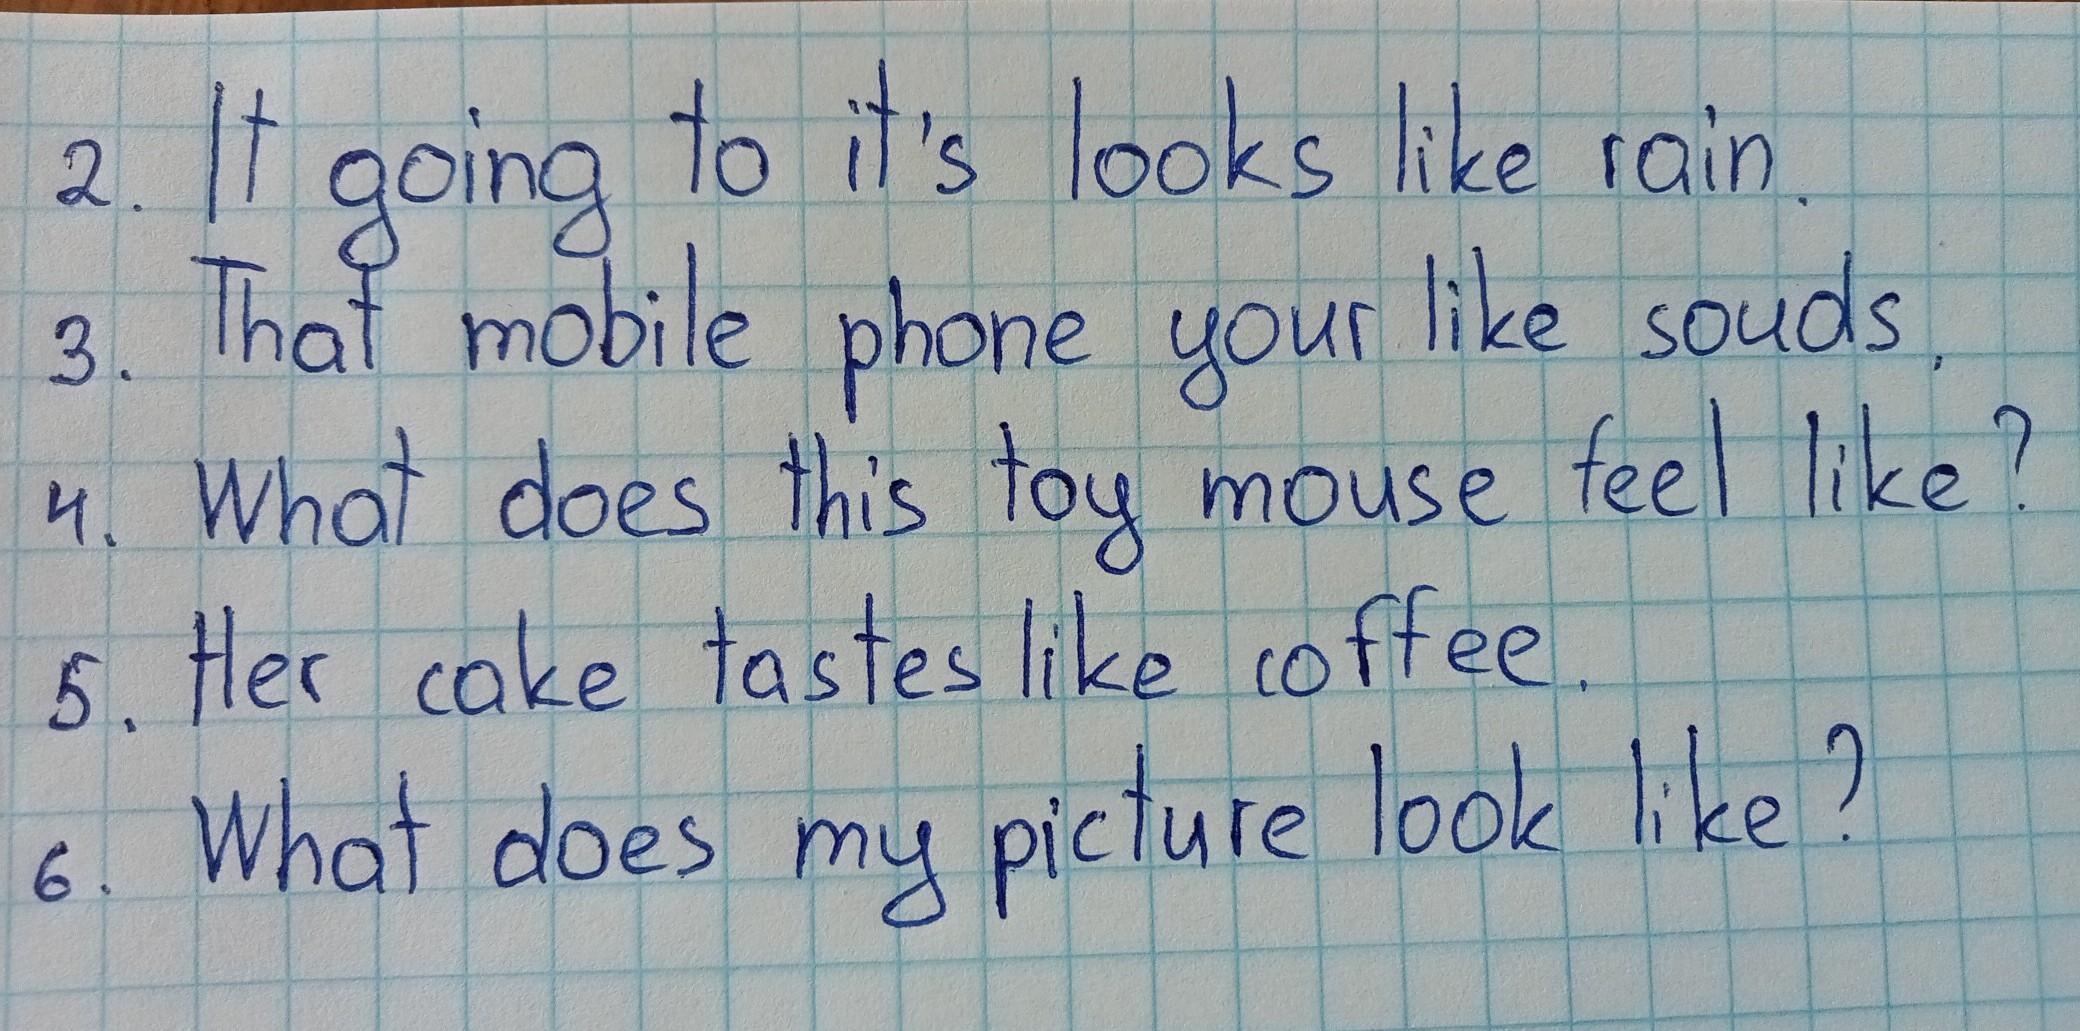 2. It going to it's looks like rain.
3. That mobile phone your like souds.
4. What does this toy mouse feel like?
5. Her cake tastes like coffee.
6. What does my picture look like?